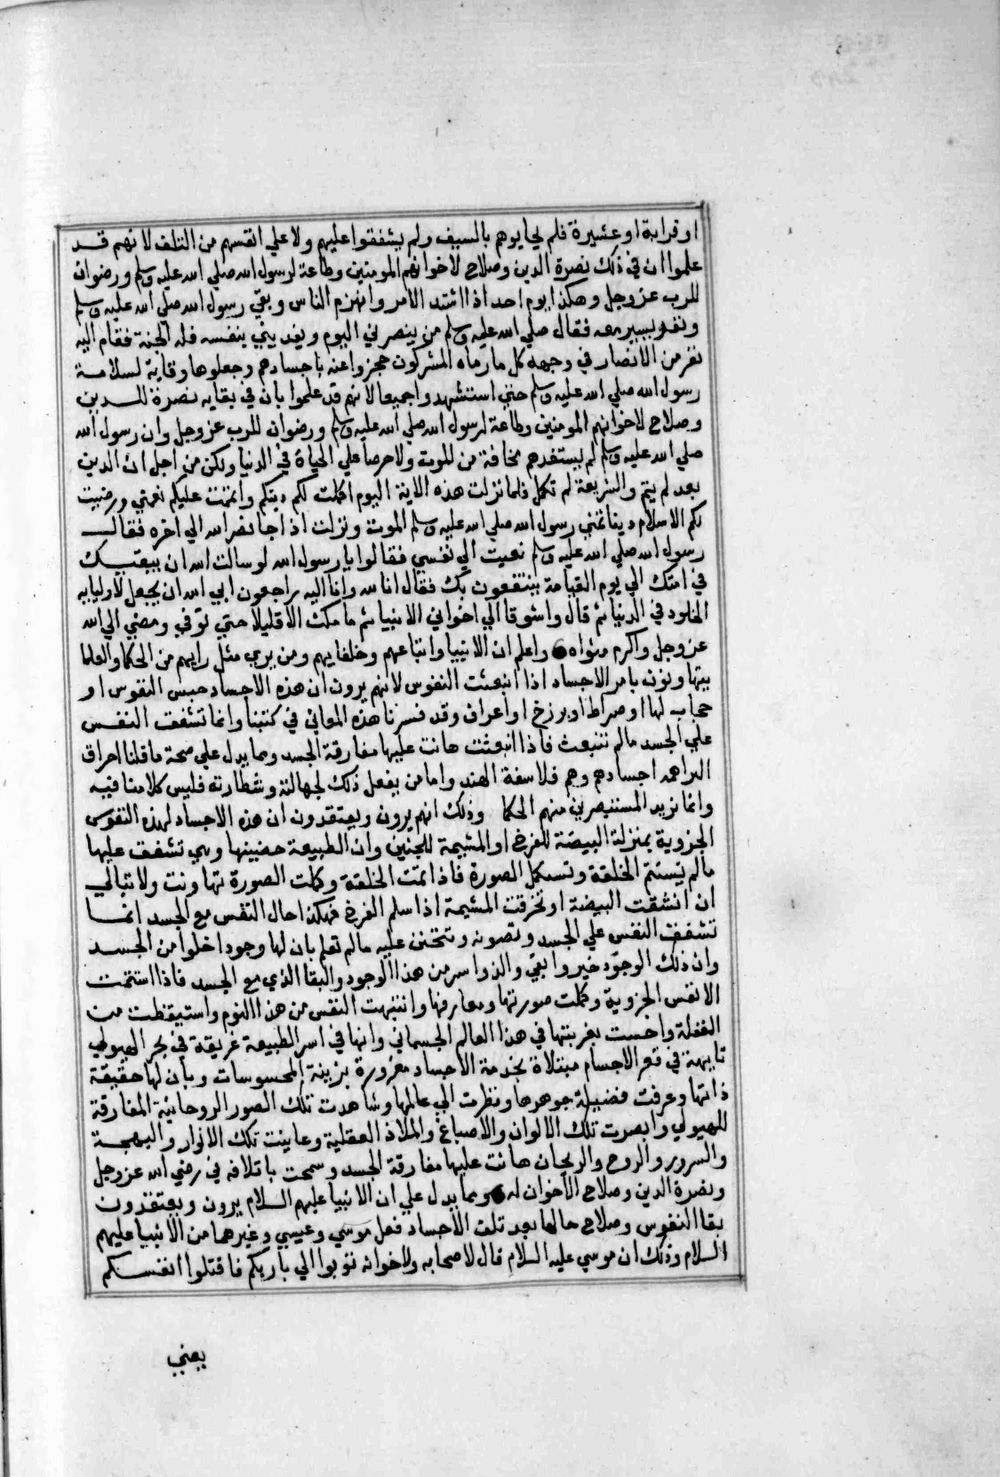 او قرابة او عشيرة فلم يحابوهم بالسيف ولم يشفقوا عليهم ولا علي انفسهم من التلف لانهم قد
علموا ان في ذلك نصرة الدين وصلاح لاخوانهم المومنين وطاعة لرسول الله صلي الله عليه وسلم ورضوان
للرب عز وجل وهكذا يوم احد اذا اشتد الامر وانهزم الناس وبقي رسول الله صلي الله عليه وسلم
ونفر يسير معه فقال صلي الله عليه وسلم من ينصرني اليوم ويفديني بنفسه فله الجنة فقام اليه
نفر من الانصار في وجهه كل ما رماه المشركون حجزوا عنه باجسادهم وجعلوها وقاية لسلامة
رسول الله صلي الله عليه وسلم حتي استشهدوا جميعا لانهم قد علموا بان في بقايه نصرة للدين
وصلاح لاخوانهم المومنين وطاعة لرسول الله صلي الله عليه وسلم ورضوان للرب عز وجل وان رسول الله
صلي الله عليه وسلم لم يستفدهم مخافة من الموت ولا حرصا علي الحياة في الدنيا ولكن من اجل ان الدين
بعد لم يتم والشريعة لم تكمل فلما نزلت هذه الاية اليوم اكملت لكم دينكم واتممت عليكم نعمتي ورضيت
لكم الاسلام دينا تمني رسول الله صلي الله عليه وسلم الموت ونزلت اذا جا نصر الله الي اخره فقال
رسول الله صلي الله عليه وسلم نعيت الي نفسي فقالوا يا رسول الله لو سالت الله ان يبقيك
في امتك الي يوم القيامة ينتفعون بك فقال انا لله وانا اليه راجعون ابي الله ان يجعل لاوليايه
الخلود في الدنيا ثم قال واشوقا الي اخواني الانبيا ثم ما مكث الا قليلا حتي توفي ومضي الي الله
عز وجل واكرم مثواه واعلم ان الانبيا واتباعهم وخلفايهم ومن يري مثل رايهم من الحكما والعلما
يتهاونون بامر الاجساد اذا انبعثت النفوس لانهم يرون ان هذه الاجساد حبس النفوس او
حجاب لها او صراط او برزخ او اعراف وقد فسرنا هذه المعاني في كتبنا وانما تشفق النفس
علي الجسد مالم تنبعث فاذا انبعثت هانت عليها مفارقة الجسد ومما يدل علي صحة ما قلنا احراق
البراهمه اجسادهم وهم فلاسفة الهند واما من يفعل ذلك لجهالته وشطارته فليس كلامنا فيه
وانما نريد المستبصرين منهم الحكما وذلك انهم يرون ويعتقدون ان هذه الاجساد لهذه النفوس
الجزوية بمنزلة البيضة للفرخ او المشيمة للجنين وان الطبيعة حضينها وهي تشفق عليها
مالم تستتم الخلقة وتستكمل الصورة فاذا تمت الخلقة وكملت الصورة تهاونت ولا تبالي
ان انشقت البيضة او تخرقت المشيمة اذا سلم الفرخ فهكذا حال النفس مع الجسد انما
تشفق النفس علي الجسد وتصونه وتتحنن عليه مالم تعلم بان لها وجودا خلوا من الجسد
وان ذلك الوجود خير وابقي والذ واسر من هذا الوجود والبقا الذي مع الجسد فاذا استتمت
الانفس الجزوية وكملت صورتها ومعارفها وانتبهت النفس من هذا النوم واستيقظت من
الغفلة واحست بغربتها في هذا العالم الجسماني وانها في اسر الطبيعة غريقة في بحر الهيولي
تايهة في قعر الاجسام مبتلاة بخدمة الاجساد مغرورة بزينة المحسوسات وبان لها حقيقة
ذاتها وعرفت فضيلة جوهرها ونظرت الي عالمها وشاهدت تلك الصور الروحانية المفارقة
للهيولي وابصرت تلك الالوان والاصباغ والملاذ العقلية وعاينت تلك الانوار والبهجة
والسرور والروح والريحان هانت عليها مفارقة الجسد وسمحت باتلافه في رضي الله عز وجل
ونصرة الدين وصلاح الاخوان له ومما يدل علي ان الانبيا عليهم السلام يرون ويعتقدون
بقا النفوس وصلاح حالها بعد تلف الاجساد فعل موسي وعيسي وغيرهما من الانبيا عليهم
السلام وذلك ان موسي عليه السلام قال لاصحابه ولاخوانه توبوا الي باريكم فاقتلوا انفسكم
يعني